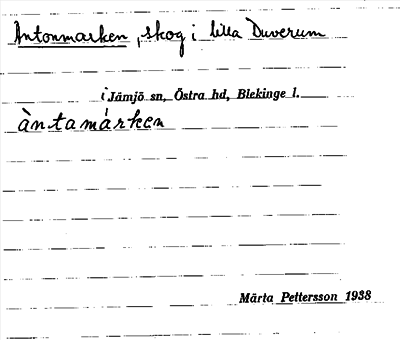 Antonmarken, skog i lilla Duverum
i Jämjö sn, Östra hd, Blekinge l.
àntamárken
Märta Pettersson 1938